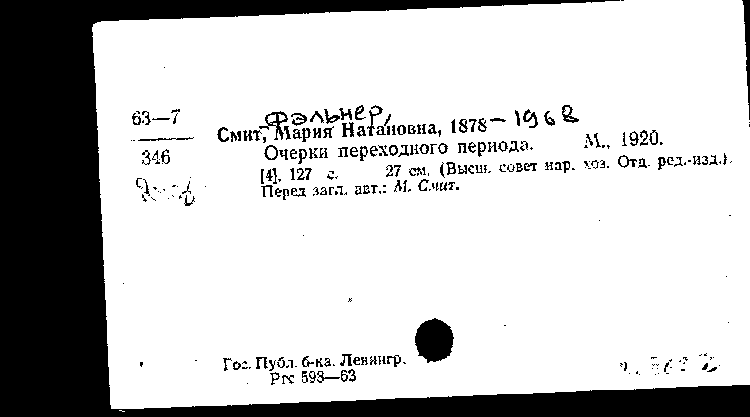 63—7
346
Фэльнер,
Смит, Мария Натановна, 1878 – 1968
Очерки переходного периода. М., 1920.
[4], 127 с. 27 см. (Высш. совет нар. хоз. Отд. ред.-изд.).
Перед загл. авт.: М. Смит.
Гос. Публ. б-ка. Ленингр.
Ргс 593—63